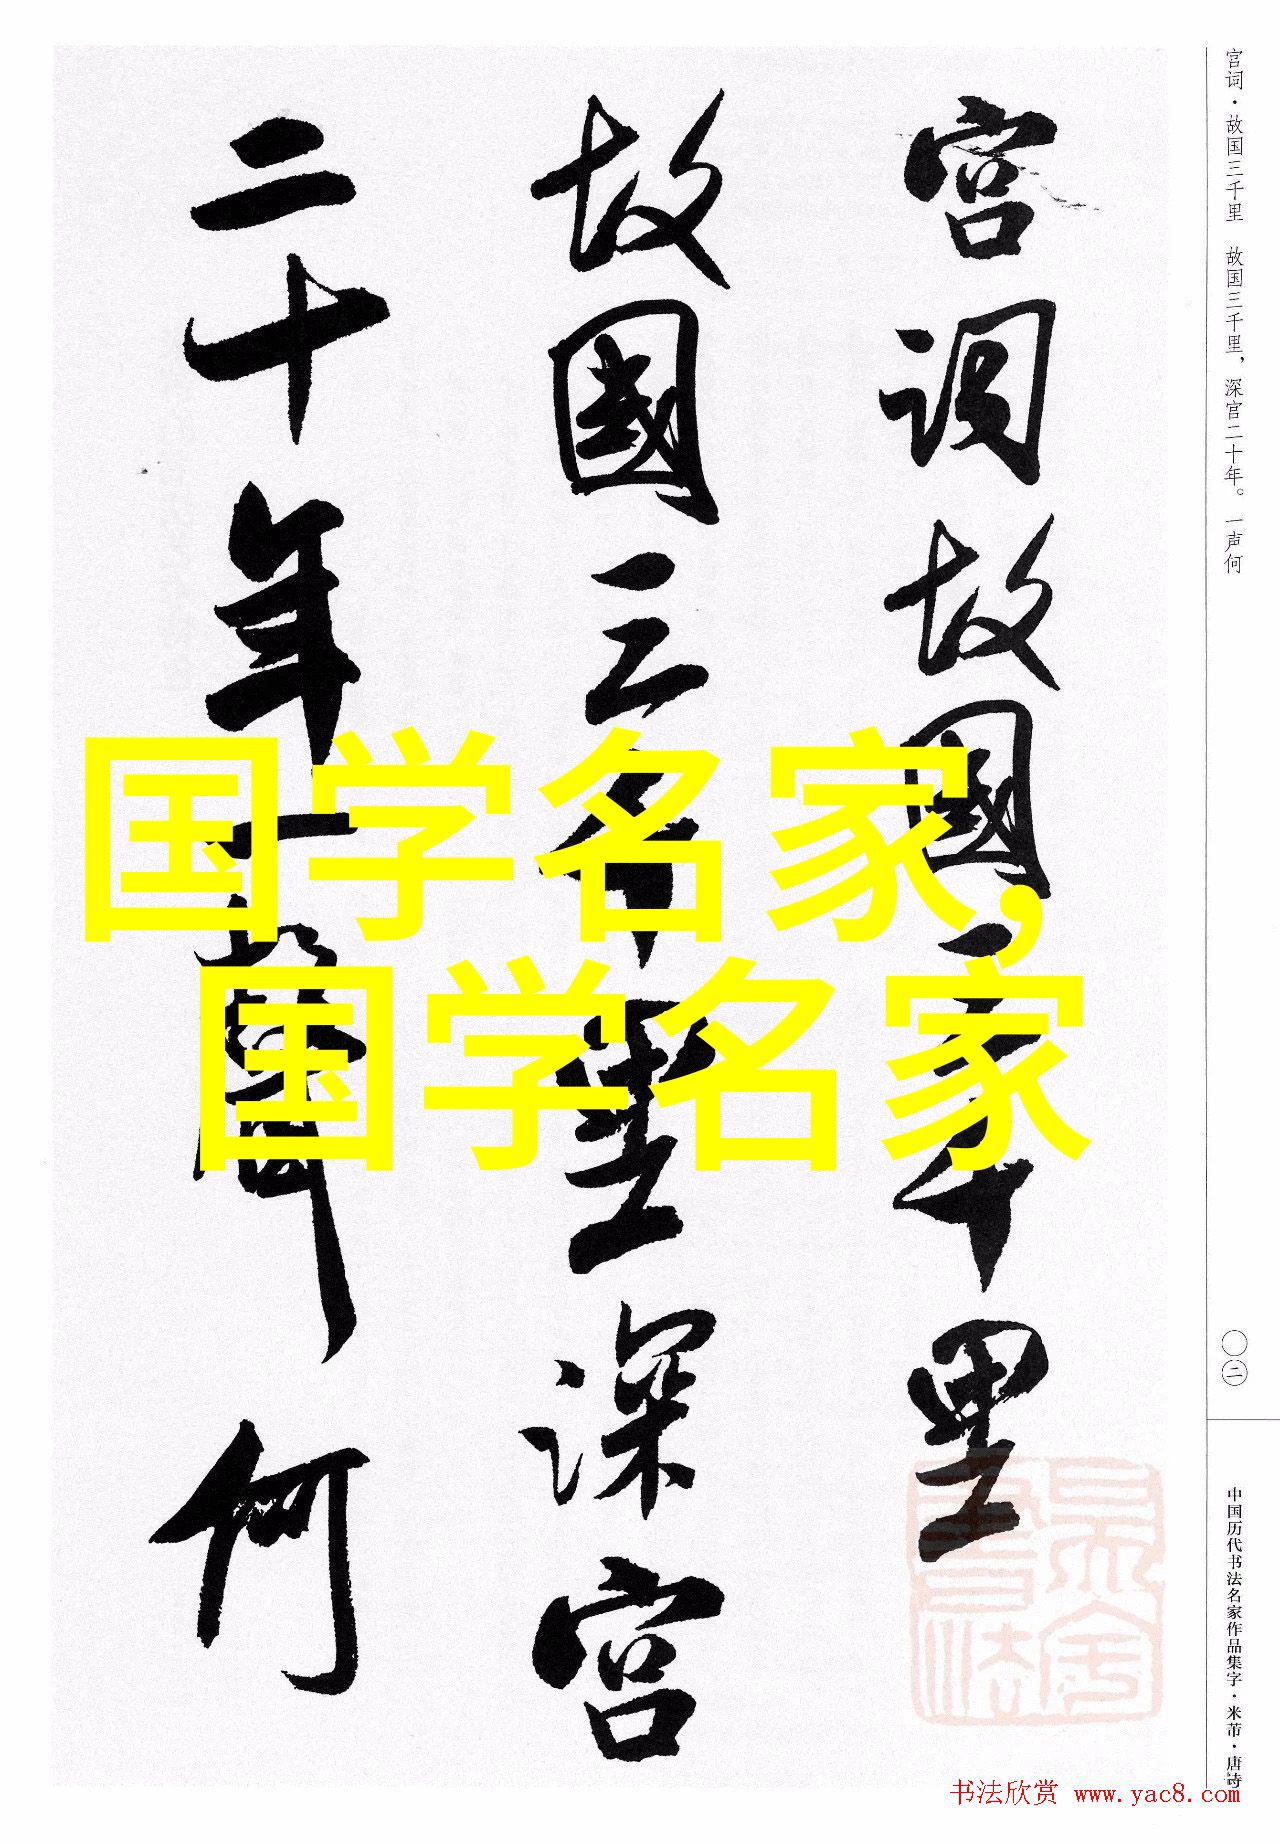 宫词·故国三千里 故国三千里，深宫二十年。一声何
宫词故國三千里
故國三千里深宫
二十年一聲何
国学名家，
国学名家
〇二
中国历代书法名家作品集字·米芾·唐诗
书法欣赏 www.yac8.com